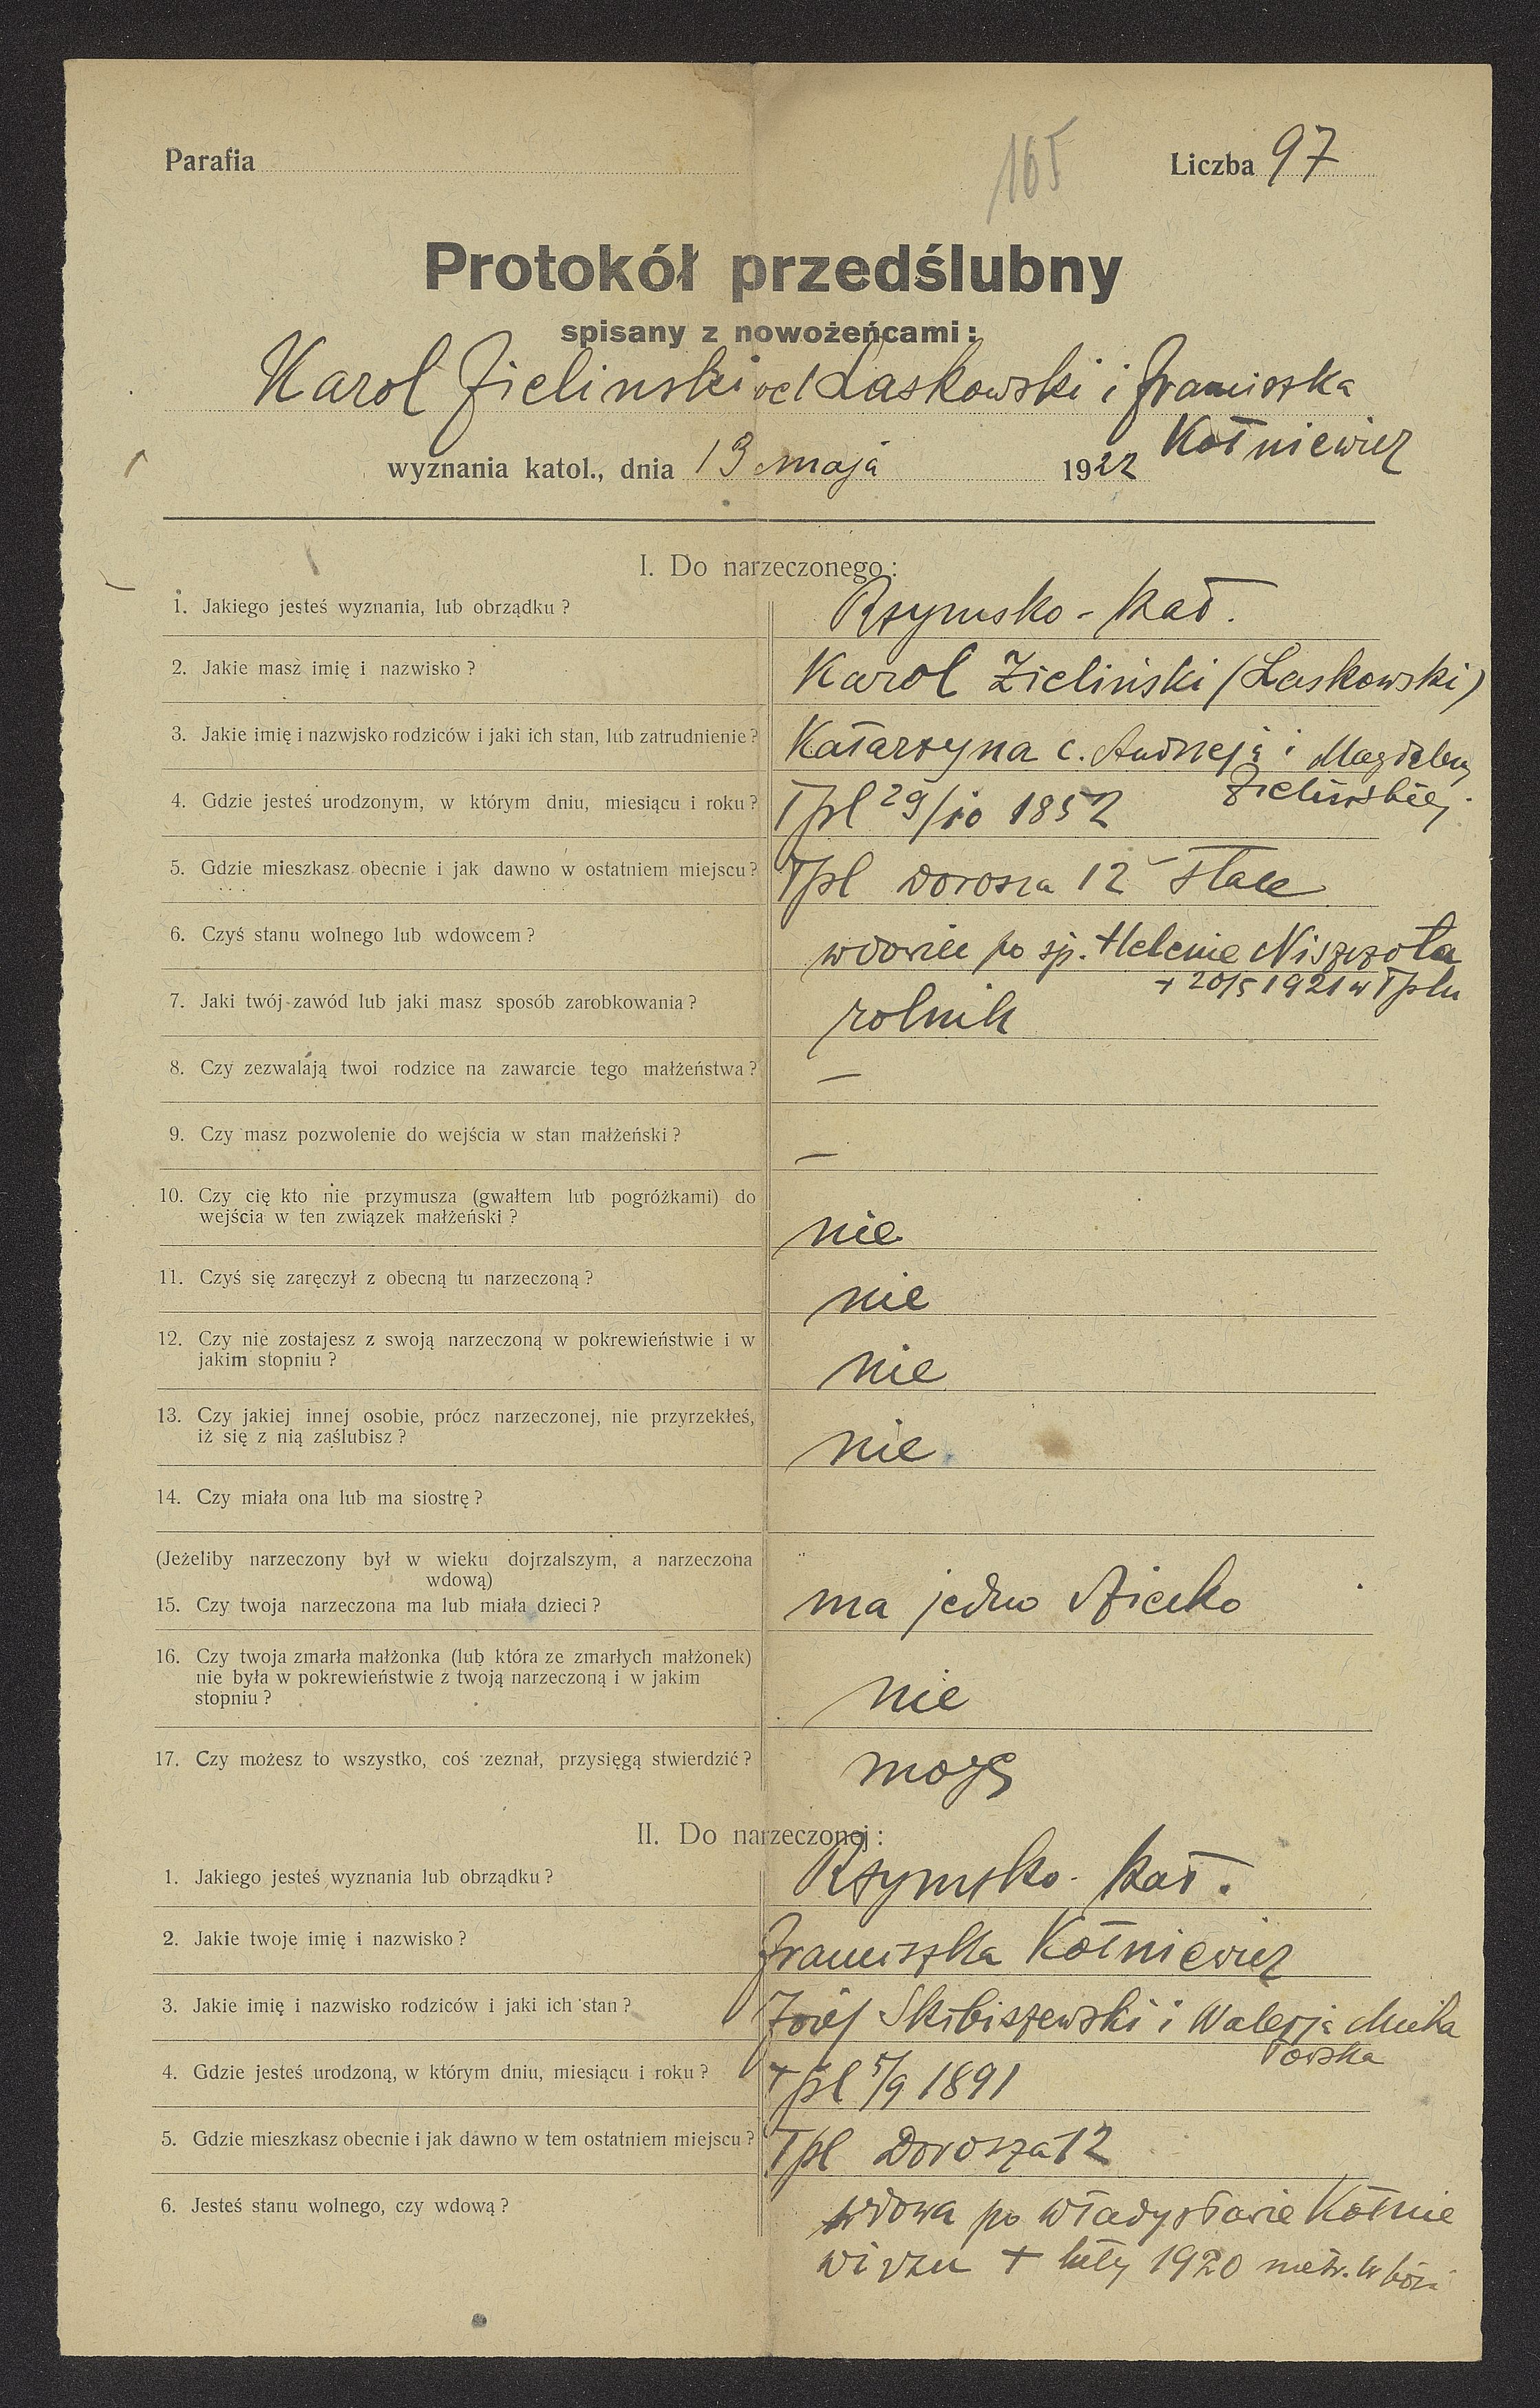 Parafia
165
Liczba 97
Protokół przedślubny
spisany z nowożeńcami:
Karol Zielinski vel Laskowski i Franciszka
Kołniewicz
wyznania katol., dnia 13 maja 1922
I. Do narzeczonego:
1. Jakiego jesteś wyznania, lub obrządku? Rzymsko-kat.
2. Jakie masz imię i nazwisko? Karol Zieliński (Laskowski)
3. Jakie imię i nazwisko rodziców i jaki ich stan, lub zatrudnienie? Katarzyna c. Andrzeja i Magdaleny
Zielińskiej
4. Gdzie jesteś urodzonym, w którym dniu, miesiącu i roku? Tpl 29/10 1852
5. Gdzie mieszkasz obecnie i jak dawno w ostatniem miejscu? Tpl Dorosza 12 stale
6. Czyś stanu wolnego lub wdowcem? wdowiec po sp. Helenie Niszczota
+ 20/5 1921 w Tplu
7. Jaki twój zawód lub jaki masz sposób zarobkowania? rolnik
8. Czy zezwalają twoi rodzice na zawarcie tego małżeństwa? —
9. Czy masz pozwolenie do wejścia w stan małżeński? —
10. Czy cię kto nie przymusza (gwałtem lub pogróżkami) do
wejścia w ten związek małżeński? nie
11. Czyś się zaręczył z obecną tu narzeczoną? nie
12. Czy nie zostajesz z swoją narzeczoną w pokrewieństwie i w
jakim stopniu? nie
13. Czy jakiej innej osobie, prócz narzeczonej, nie przyrzekłeś,
iż się z nią zaślubisz? nie
14. Czy miała ona lub ma siostrę?
(Jeżeliby narzeczony był w wieku dojrzalszym, a narzeczona
wdową)
15. Czy twoja narzeczona ma lub miała dzieci? ma jedno dziecko
16. Czy twoja zmarła małżonka (lub która ze zmarłych małżonek)
nie była w pokrewieństwie z twoją narzeczoną i w jakim
stopniu? nie
17. Czy możesz to wszystko, coś zeznał, przysięgą stwierdzić? mogę
II. Do narzeczonej:
1. Jakiego jesteś wyznania lub obrządku? Rzymsko-kat.
2. Jakie twoje imię i nazwisko? Franciszka Kołniewicz
3. Jakie imię i nazwisko rodziców i jaki ich stan? Józef Skibiszewski i Walerja
4. Gdzie jesteś urodzoną, w którym dniu, miesiącu i roku? Tpl 5/9 1891
5. Gdzie mieszkasz obecnie i jak dawno w tem ostatniem miejscu? Tpl Dorosza 12
6. Jesteś stanu wolnego, czy wdową? wdowa po Władysławie Kołnie
wiczu + luty 1920 metr. w